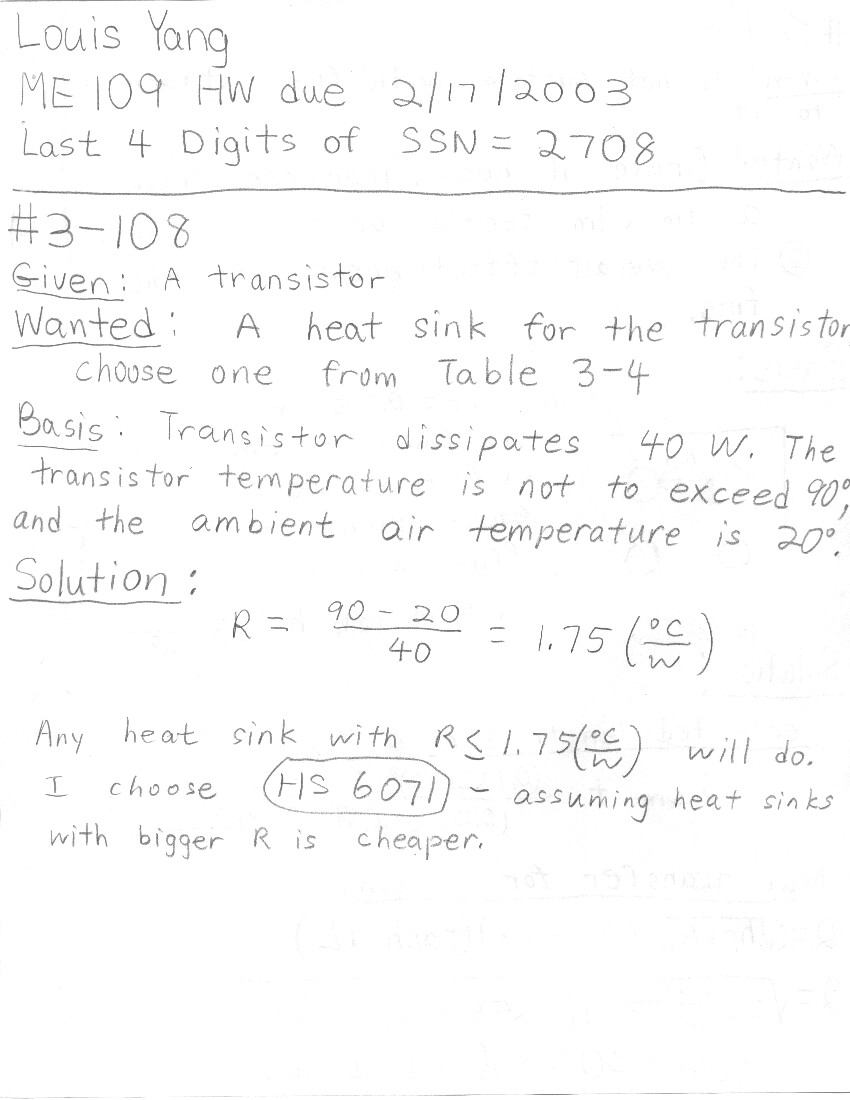 Louis Yang
ME 109 HW due 2/17/2003
Last 4 Digits of SSN = 2708
#3-108
Given: A transistor
Wanted: A heat sink for the transistor
choose one from Table 3-4
Basis: Transistor dissipates 40 W. The
transistor temperature is not to exceed 90°,
and the ambient air temperature is 20°.
Solution:
R = (90 - 20)/40 = 1.75 (°C/W)
Any heat sink with R ≤ 1.75 (°C/W) will do.
I choose HS 6071 - assuming heat sinks
with bigger R is cheaper.